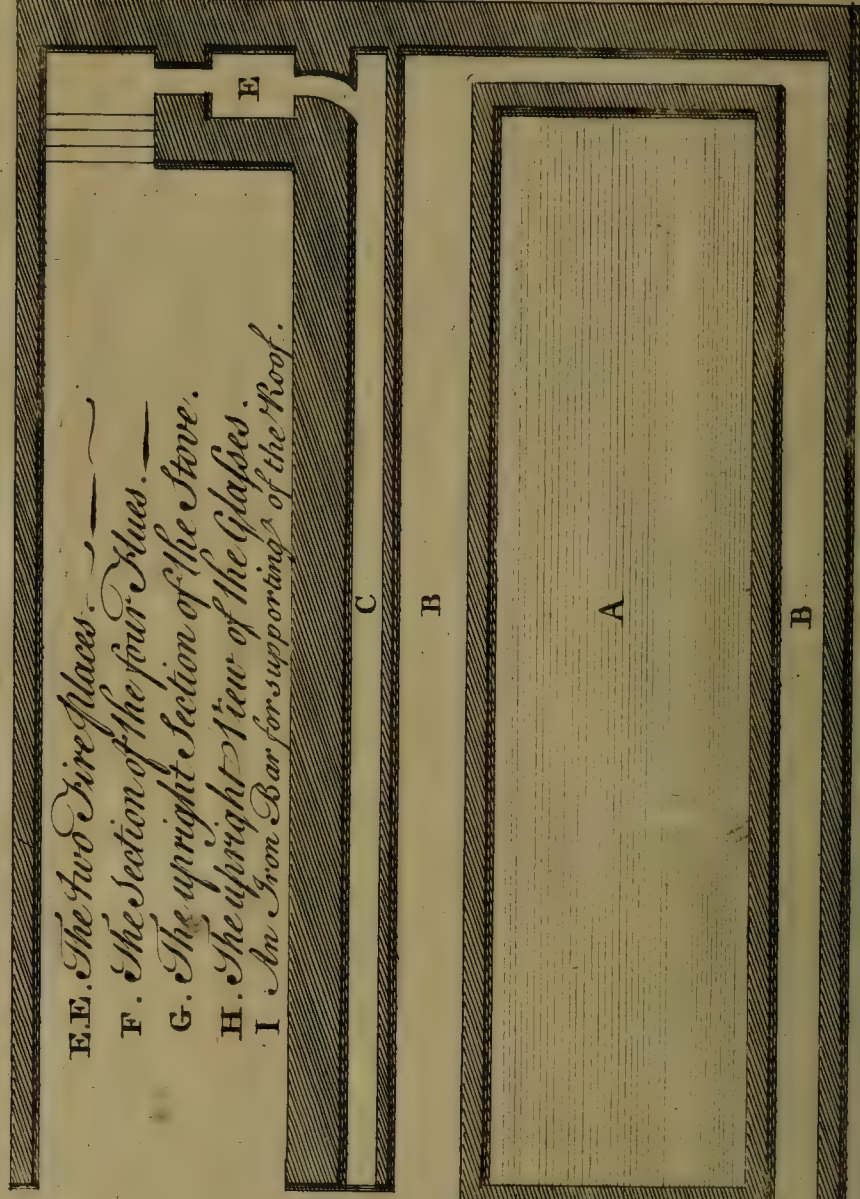 E.E. The two Fire places.
F. The Section of the four Flues.
G. The upright Section of the Stove.
H. The upright View of the Glaſses.
I An Iron Bar for supporting of the Roof.
E
C
B
A
B